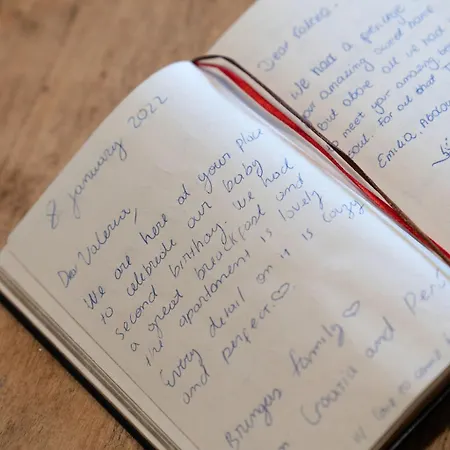 8 january 2022
Dear Valerea,
We are here at your place
to celebrate our baby
second birthay. We had
a great breackfast and
the apartament is lovely
Every detail on it is cozy
and perfect.♡
family♡
Croatia and Perú
Dear
We had a
your amazing
but above all we had
to meet your amazing
soul. For all that
Emilia,